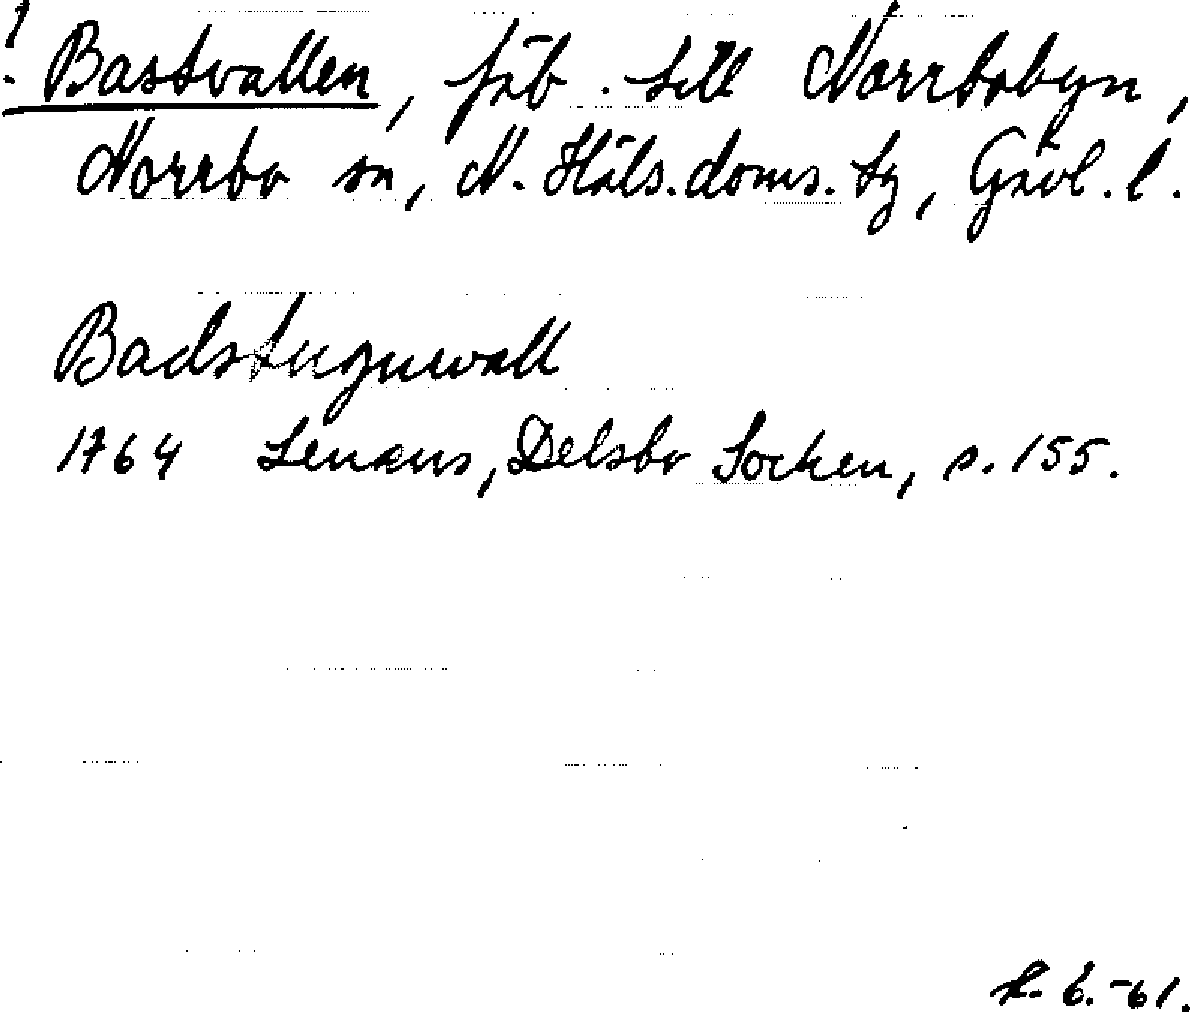 ! Bastvallen, fäb. till Norrbobyn,
Norrbo sn, N. Häls. doms. tg, Gävl. l.
Badstuguwall
1764 Lenæus, Delsbo Socken, s. 155.
6. -61.